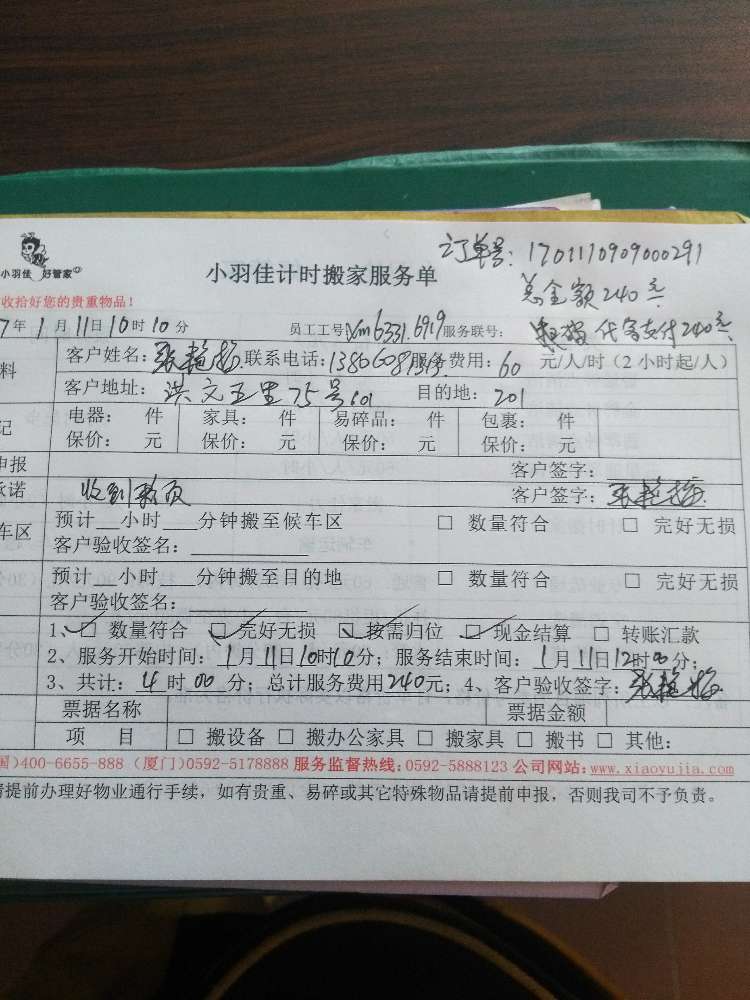 订单号：1701110909000291
小羽佳 好管家
小羽佳计时搬家服务单
总金额240元
收拾好您的贵重物品！
代客支付240元
7年1月11日10时10分 员工工号 xm6331.6919 服务联号：
料 客户姓名：张艳梅 联系电话： 服务费用：60 元/人/时（2小时起/人）
客户地址：洪文五里75号601 目的地：201
记 电器： 件 家具： 件 易碎品： 件 包裹： 件
保价： 元 保价： 元 保价： 元 保价： 元
申报 客户签字：
承诺 收到 客户签字：张艳梅
车区 预计__小时___分钟搬至候车区 □ 数量符合 □ 完好无损
客户验收签名：
预计__小时___分钟搬至目的地 □ 数量符合 □ 完好无损
客户验收签名：
1、□ 数量符合 □ 完好无损 □ 按需归位 □ 现金结算 □ 转账汇款
2、服务开始时间：1月11日10时10分；服务结束时间：1月11日12时00分；
3、共计：4时00分；总计服务费用240元；4、客户验收签字：张艳梅
票据名称 票据金额
项 目 □ 搬设备 □ 搬办公家具 □ 搬家具 □ 搬书 □ 其他：
国）400-6655-888（厦门）0592-5178888 服务监督热线：0592-5888123 公司网站：www.xiaoyujia.com
请提前办理好物业通行手续，如有贵重、易碎或其它特殊物品请提前申报，否则我司不予负责。